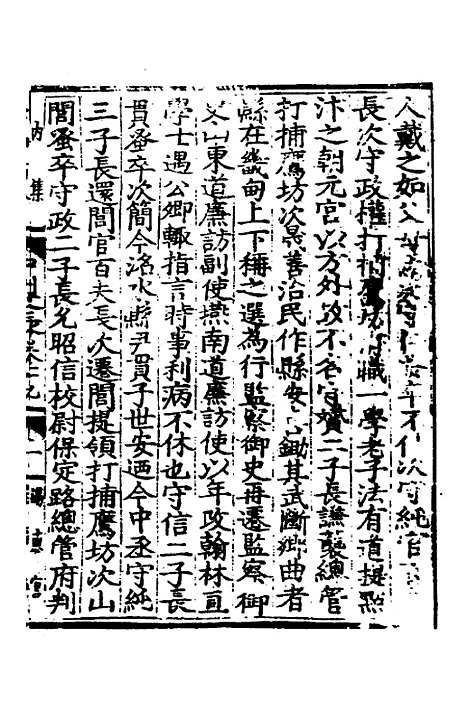 人戴之如父母 守仁 年不仕次守純官
長次守政權打捕鷹坊守職一學老子法有道提點
汴之朝元官以方外故不名守贇二子長謙襲總管
打捕鷹坊次杲善治民作縣安 鋤其武斷鄉曲者
縣在畿甸上下稱之選為行監察御史再遷監察御
史山東道廉訪副使燕南道廉訪使以年政翰林直
學士遇公卿輙指言時事利病不休也守信二子長
貫蚤卒次簡今洺水縣尹貫子世安迺今中丞守純
三子長還閭官百夫長次遷閭提領打捕鷹坊次山
閭蚤卒守政二子長允昭信校尉保定路總管府判